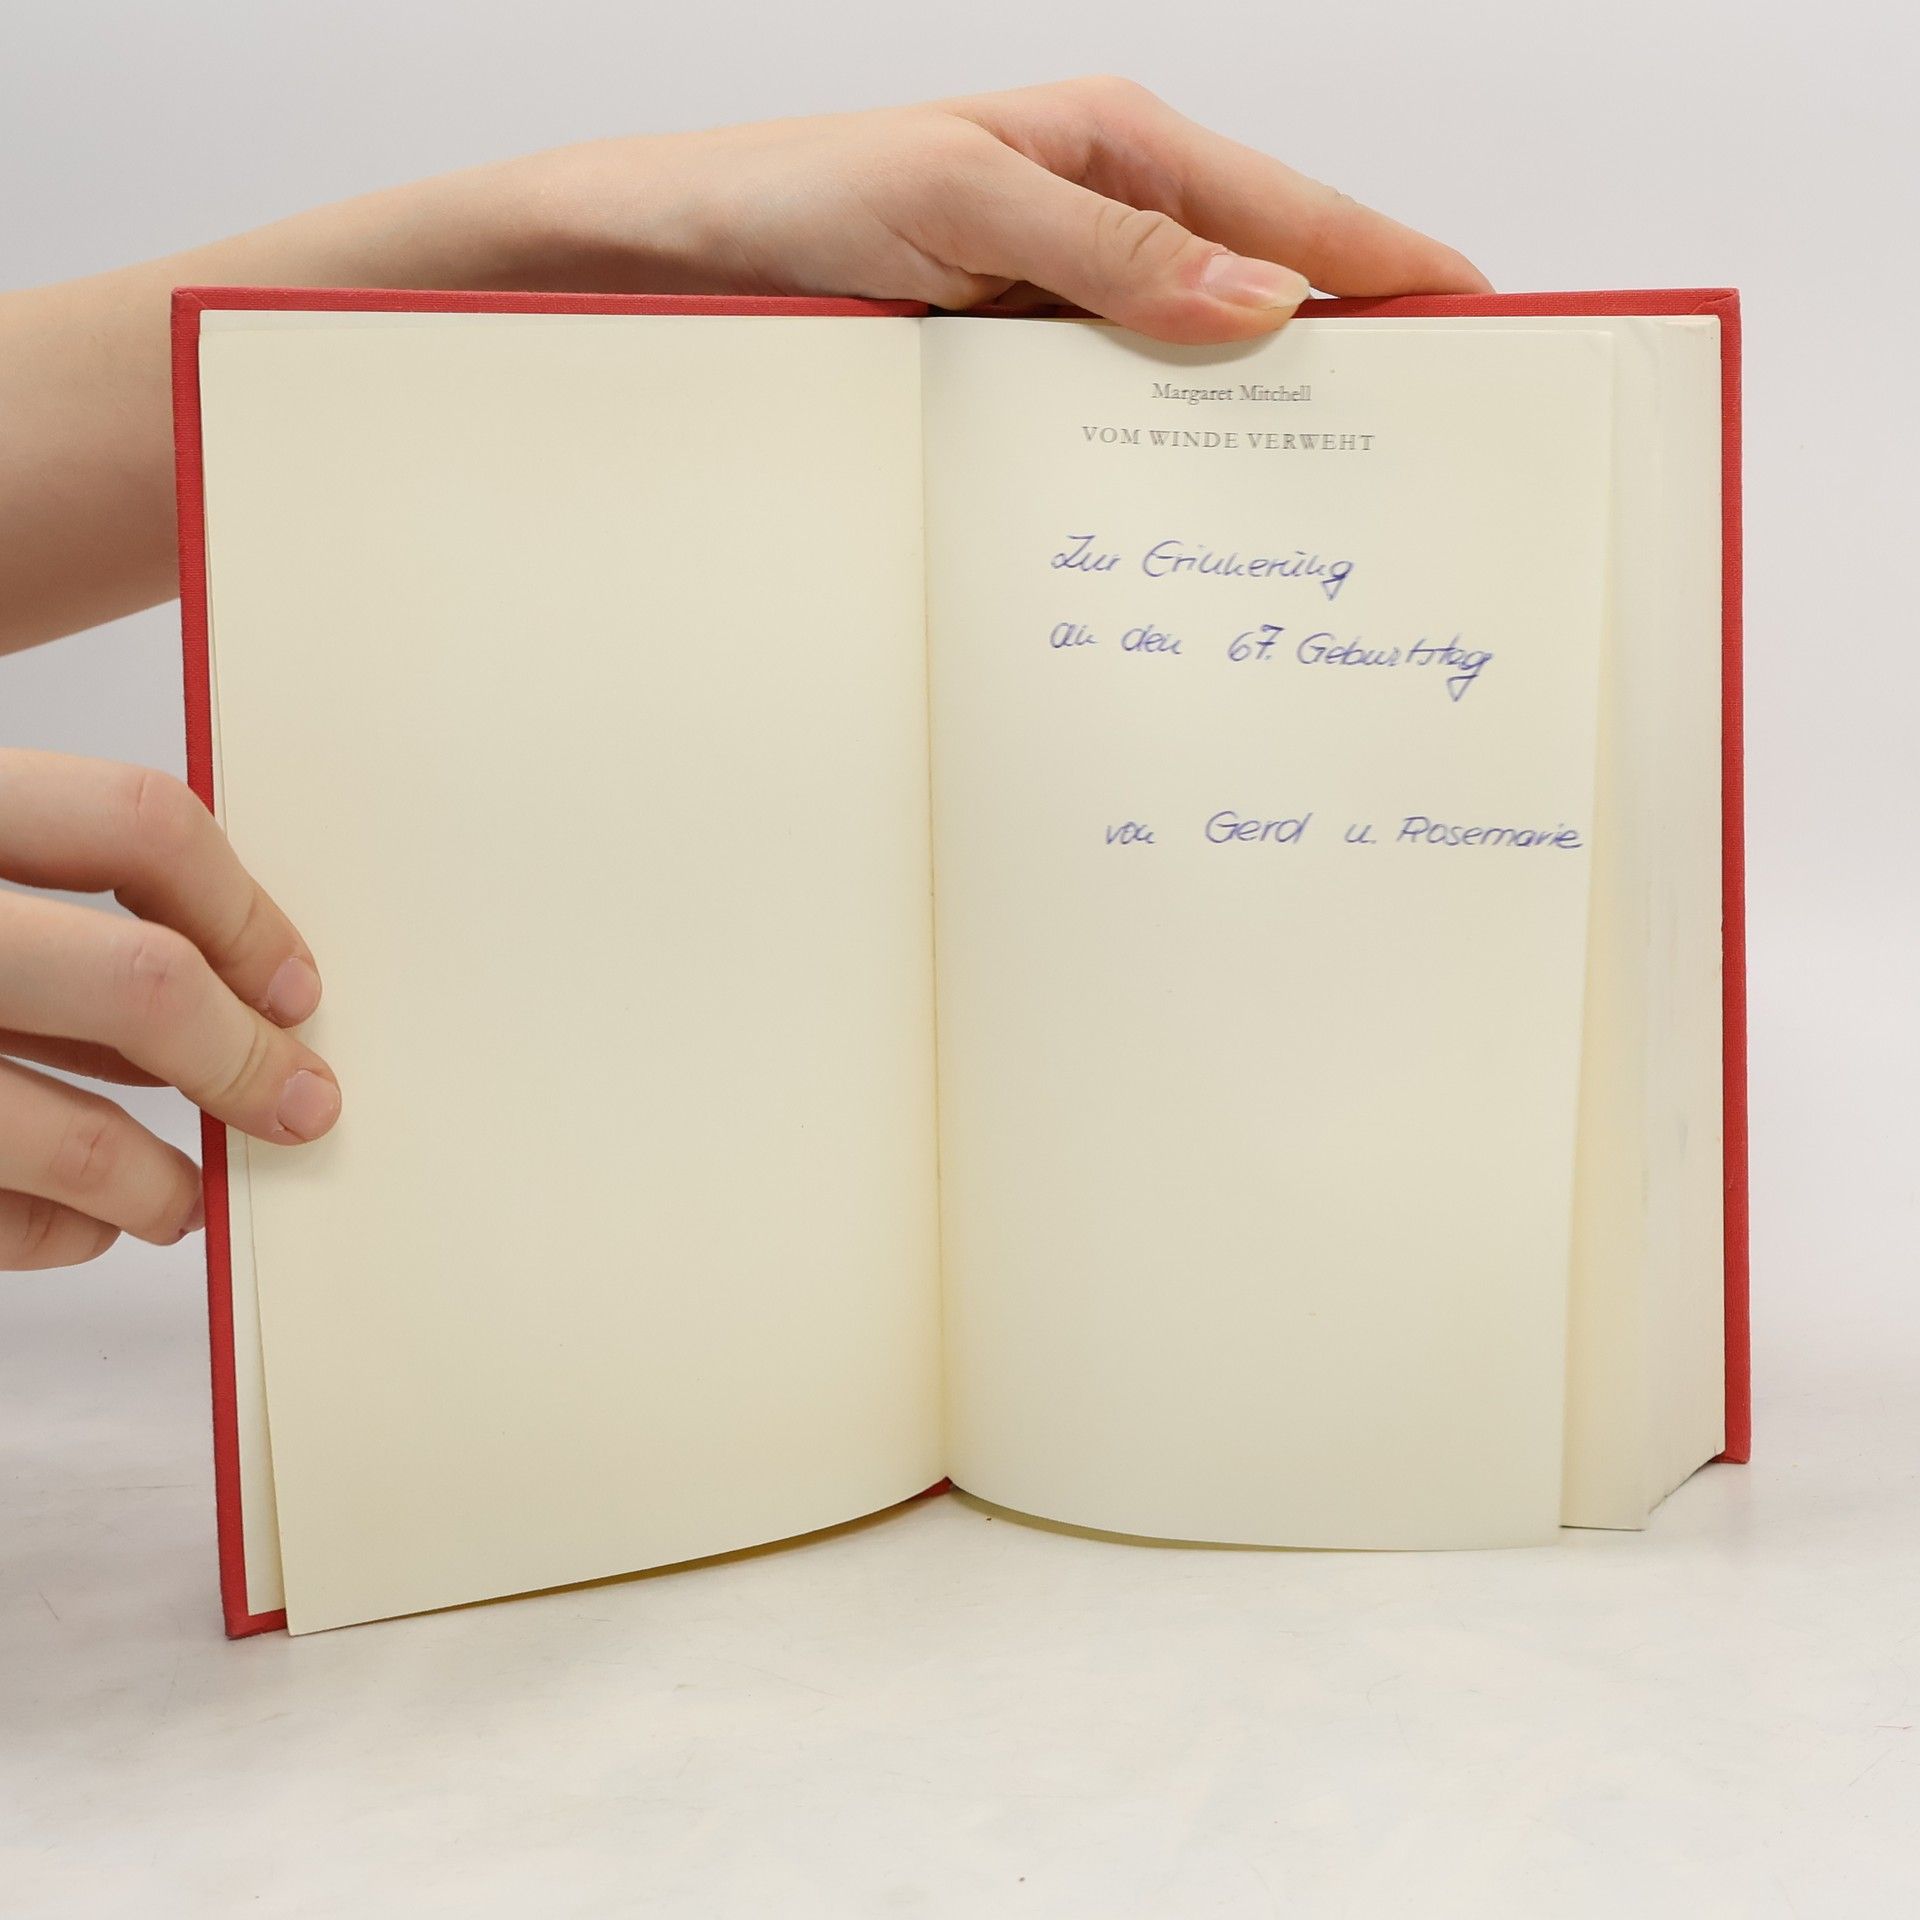 Margaret Mitchell
VOM WINDE VERWEHT
Zur Erinnerung
an den 67. Geburtstag
von Gerd u. Rosemarie